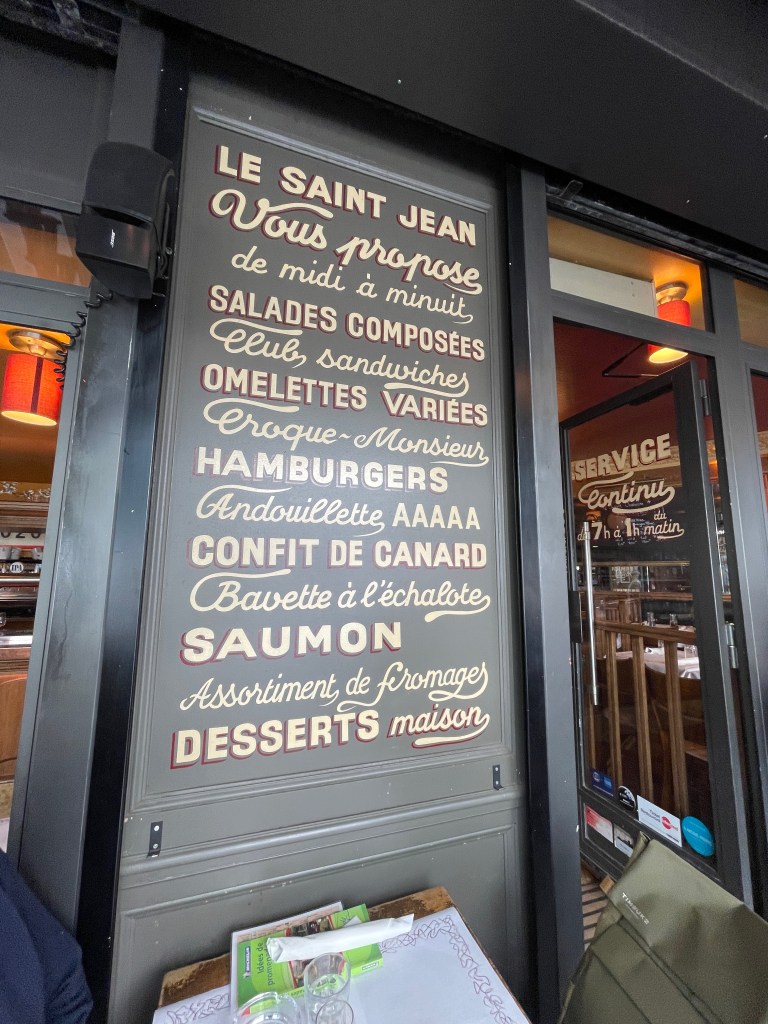 LE SAINT JEAN
Vous propose
de midi à minuit
SALADES COMPOSÉES
Club, sandwiches
OMELETTES VARIÉES
Croque-Monsieur
HAMBURGERS
Andouillette AAAAA
CONFIT DE CANARD
Bavette à l'échalote
SAUMON
Assortiment de fromages
DESSERTS maison
SERVICE
Continu
du
du 7h à 1h matin
IPA
BOSE
MICHELIN
Idées de